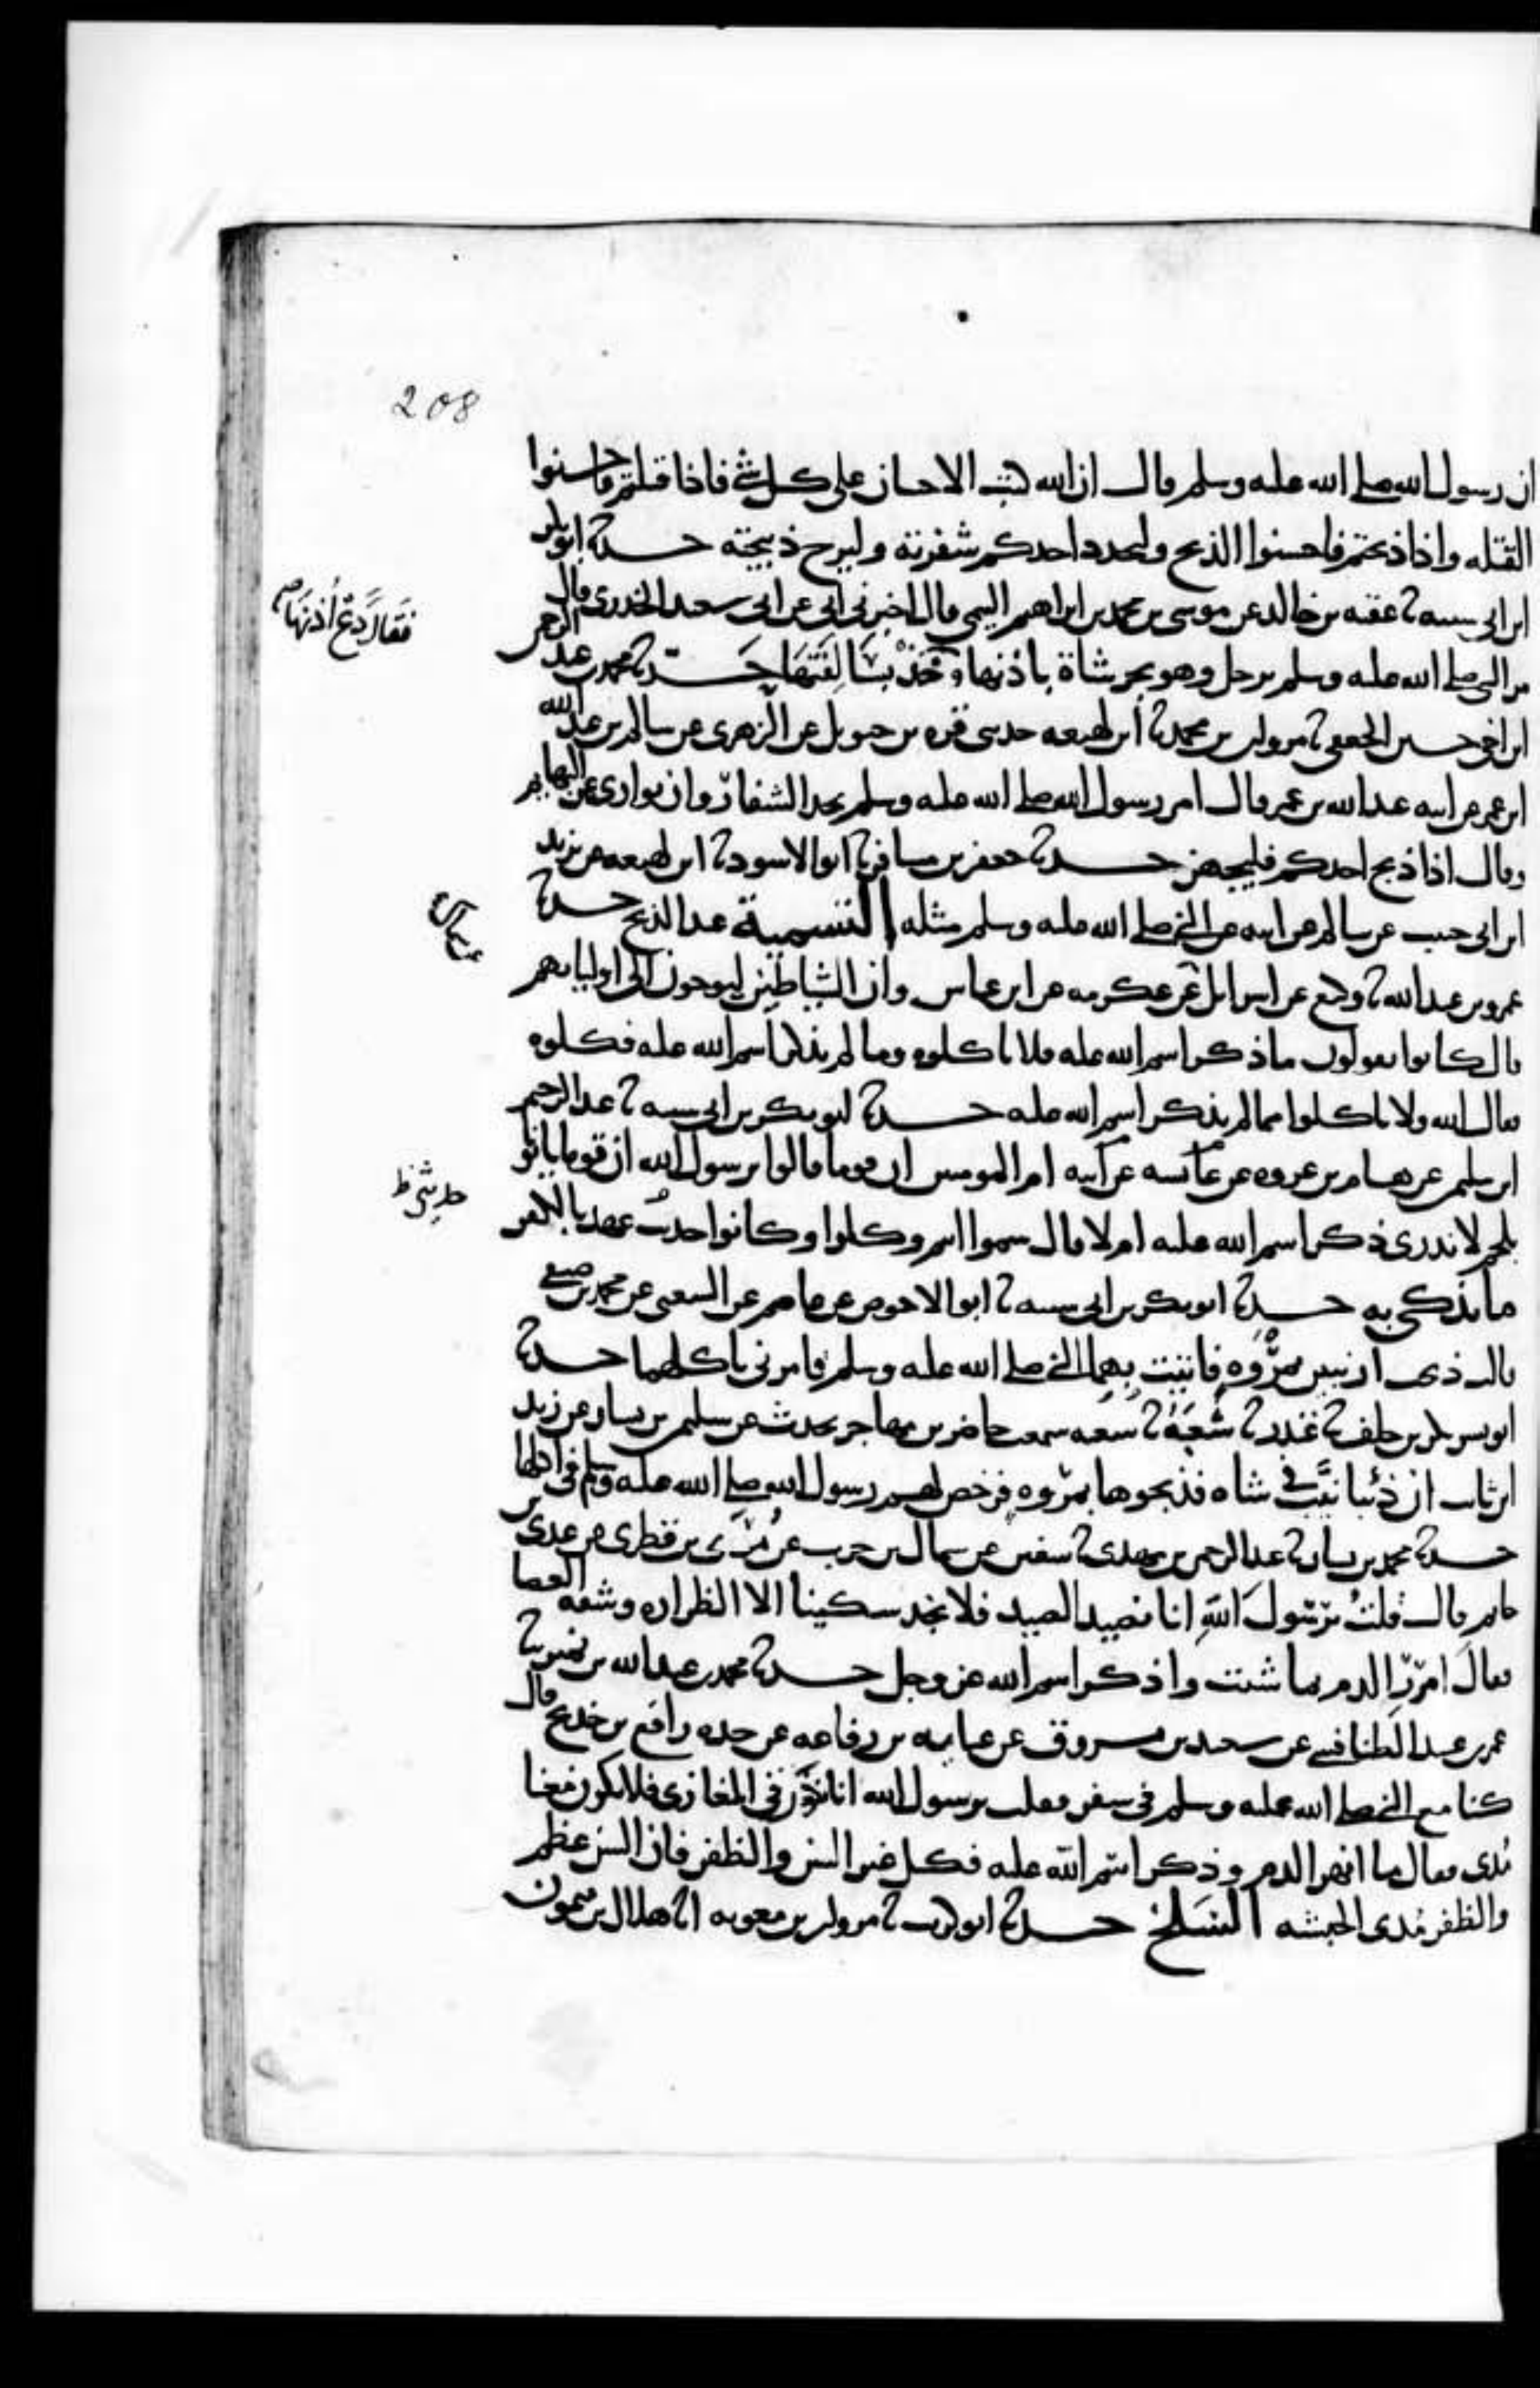 208
ان رسول الله صلى الله عليه وسلم قال ان الله كتب الاحسان على كل شي فاذا قتلتم فاحسنوا
القتله واذا ذبحتم فاحسنوا الذبح وليحدد احدكم شفرته وليرح ذبيحته حدثنا ابو بكر
ابن ابي شيبه ثنا عقبه بن خالد عن موسى بن محمد بن ابراهيم التيمي قال اخبرني ابي عن ابي سعيد الخدري قال
مر النبي صلى الله عليه وسلم برجل وهو يجر شاة باذنها وخذ بسالفتها حدثنا محمد بن عبد الرحمن
فقال دع اذنها صح
ابن اخي حسين الجعفي ثنا مروان بن محمد ثنا ابن لهيعه حدثني قره بن حيويل عن الزهري عن سالم بن عبد الله
ابن عمر عن ابيه عبد الله بن عمر قال امر رسول الله صلى الله عليه وسلم بحد الشفار وان توارى عن البهايم
وقال اذا ذبح احدكم فليجهز حدثنا جعفر بن مسافر ثنا ابو الاسود ثنا ابن لهيعه عن يزيد
ابن ابي حبيب عن سالم عن ابيه عن النبي صلى الله عليه وسلم مثله التسمية عند الذبح حدثنا
عمرو بن عبد الله ثنا وكيع عن اسرايل عن عكرمه عن ابن عباس وان الشياطين ليوحون الى اوليايهم
عن سماك
قال كانوا يقولون ما ذكر اسم الله عليه فلا تاكلوه وما لم يذكر اسم الله عليه فكلوه
فقال الله ولا تاكلوا مما لم يذكر اسم الله عليه حدثنا ابو بكر بن ابي شيبه ثنا عبد الرحيم
ابن سليمن عن هشام بن عروه عن عائشه عن ابيه ام المومنين ان قوما قالوا يرسول الله ان قوما ياتونا
بلحم لا ندري ذكر اسم الله عليه ام لا قال سموا انتم وكلوا وكانوا حديث عهد بالكفر
ما يذكى به حدثنا ابو بكر بن ابي شيبه ثنا ابو الاحوص عن عاصم عن الشعبي عن محمد بن صيفي
قال ذبحت ارنبين بمروه فاتيت بهما النبي صلى الله عليه وسلم فامرني باكلهما حدثنا
ابو بشر بكر بن خلف ثنا غندر ثنا شعبه ثنا شعبه سمعت حاضر بن مهاجر يحدث عن سليمن بن يسار عن زيد
ابن ثابت ان ذئبا نيب في شاه فذبحوها بمروه فرخص لهم رسول الله صلى الله عليه وسلم في اكلها
حدثنا محمد بن بشار ثنا عبد الرحمن بن مهدي ثنا سفين عن سماك بن حرب عن مري بن قطري عن عدي بن
حاتم قال قلت يرسول الله انا نصيد الصيد فلا نجد سكينا الا الظراره وشقه العصا
فقال امرر الدم بما شئت واذكر اسم الله عز وجل حدثنا محمد بن عبد الله بن نمير ثنا
عمر بن عبيد الطنافسي عن سعيد بن مسروق عن عبايه بن رفاعه عن جده رافع بن خديج قال
كنا مع النبي صلى الله عليه وسلم في سفر فقلت يرسول الله انا نكون في المغازي فلا يكون معنا
مدى فقال ما انهر الدم وذكر اسم الله عليه فكل غير السن والظفر فان السن عظم
والظفر مدى الحبشه السلخ حدثنا ابو كريب ثنا مروان بن معويه انا هلال بن ميمون